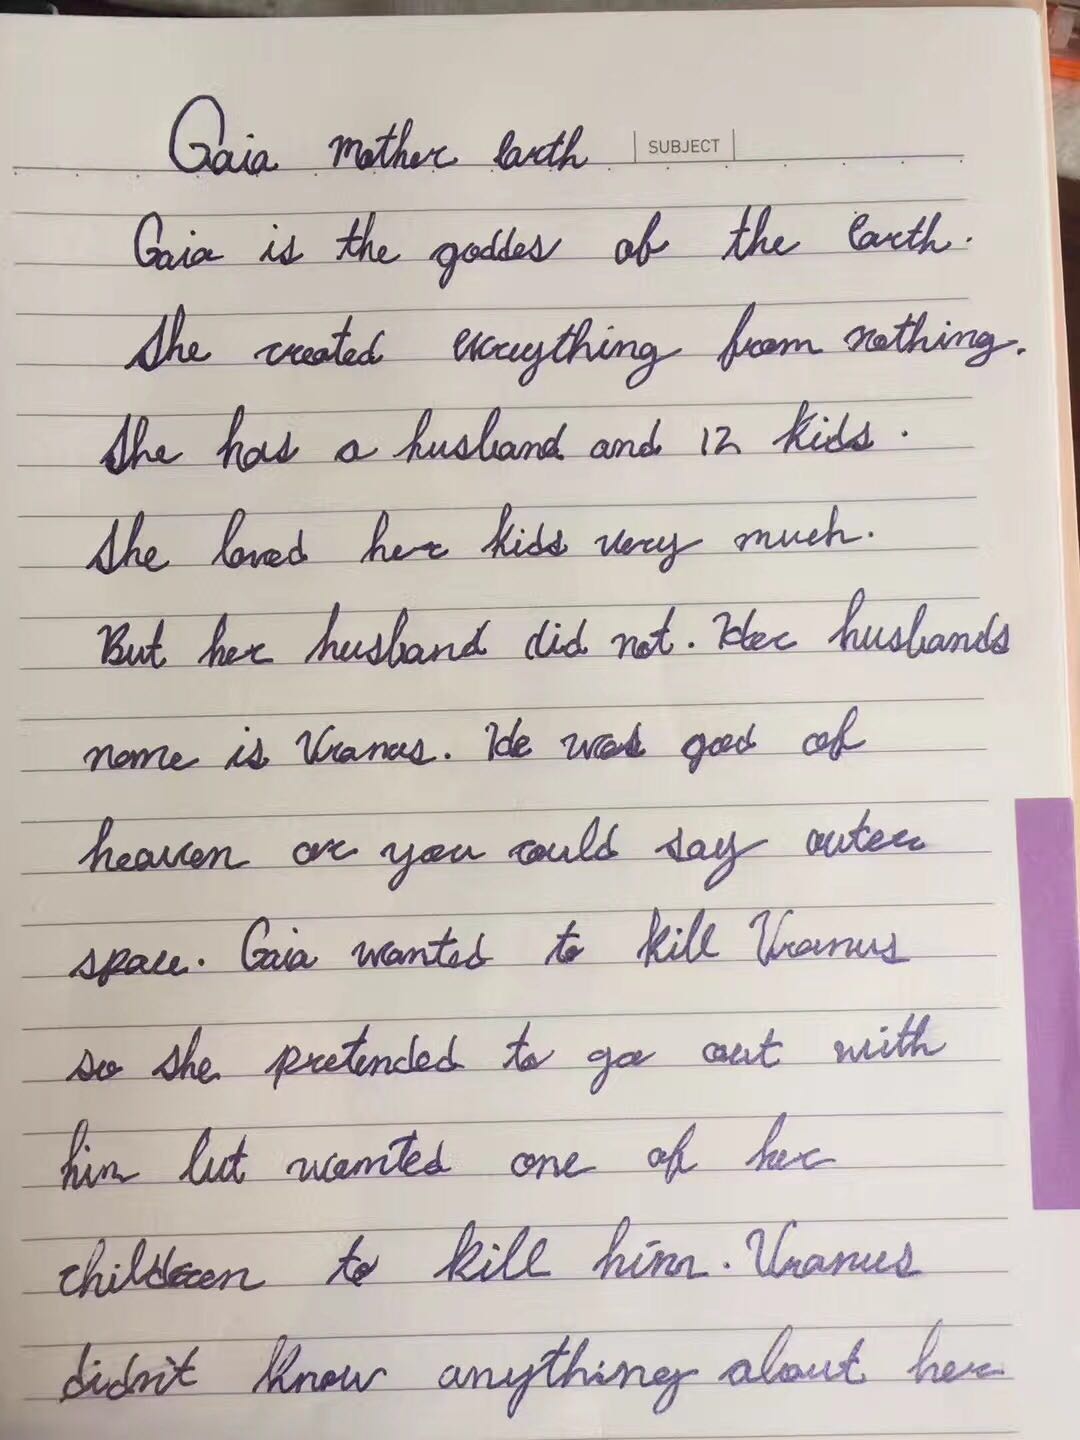 Gaia mother earth
SUBJECT
Gaia is the goddes of the Earth.
She created everything from nothing.
She has a husband and 12 kids.
She loved her kids very much.
But her husband did not. Her husbands
name is Uranus. He was god of
heaven or you could say outer
space. Gaia wanted to kill Uranus
so she pretended to go out with
him but wanted one of her
children to kill him. Uranus
didn't know anything about her